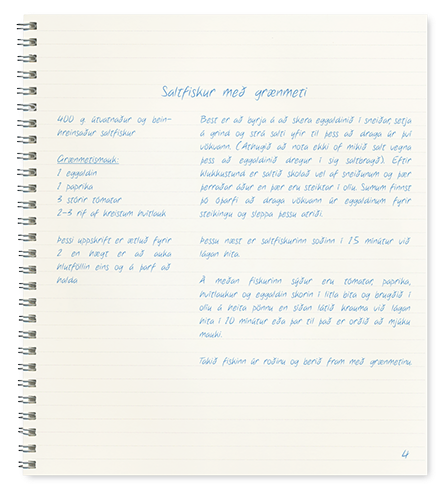 Saltfiskur með grænmeti
400 g. útvatnaður og bein-
hreinsaður saltfiskur
Grænmetismauk:
1 eggaldin
1 paprika
3 stórir tómatar
2-3 rif af kreistum hvítlauk
Þessi uppskrift er ætluð fyrir
2 en hægt er að auka
hlutföllin eins og á þarf að
halda
Best er að byrja á að skera eggaldinið í sneiðar, setja
á grind og strá salti yfir til þess að draga úr því
vökvann. (Athugið að nota ekki of mikið salt vegna
þess að eggaldinið dregur í sig saltbragð). Eftir
klukkustund er saltið skolað vel af sneiðunum og þær
þerraðar áður en þær eru steiktar í olíu. Sumum finnst
þó óþarfi að draga vökvann úr eggaldinum fyrir
steikingu og sleppa þessu atriði.
Þessu næst er saltfiskurinn soðinn í 15 mínútur við
lágan hita.
Á meðan fiskurinn sýður eru tómatar, paprika,
hvítlaukur og eggaldin skorin í litla bita og brugðið í
olíu á heita pönnu en síðan látið krauma við lágan
hita í 10 mínútur eða þar til það er orðið að mjúku
mauki.
Takið fiskinn úr roðinu og berið fram með grænmetinu.
4